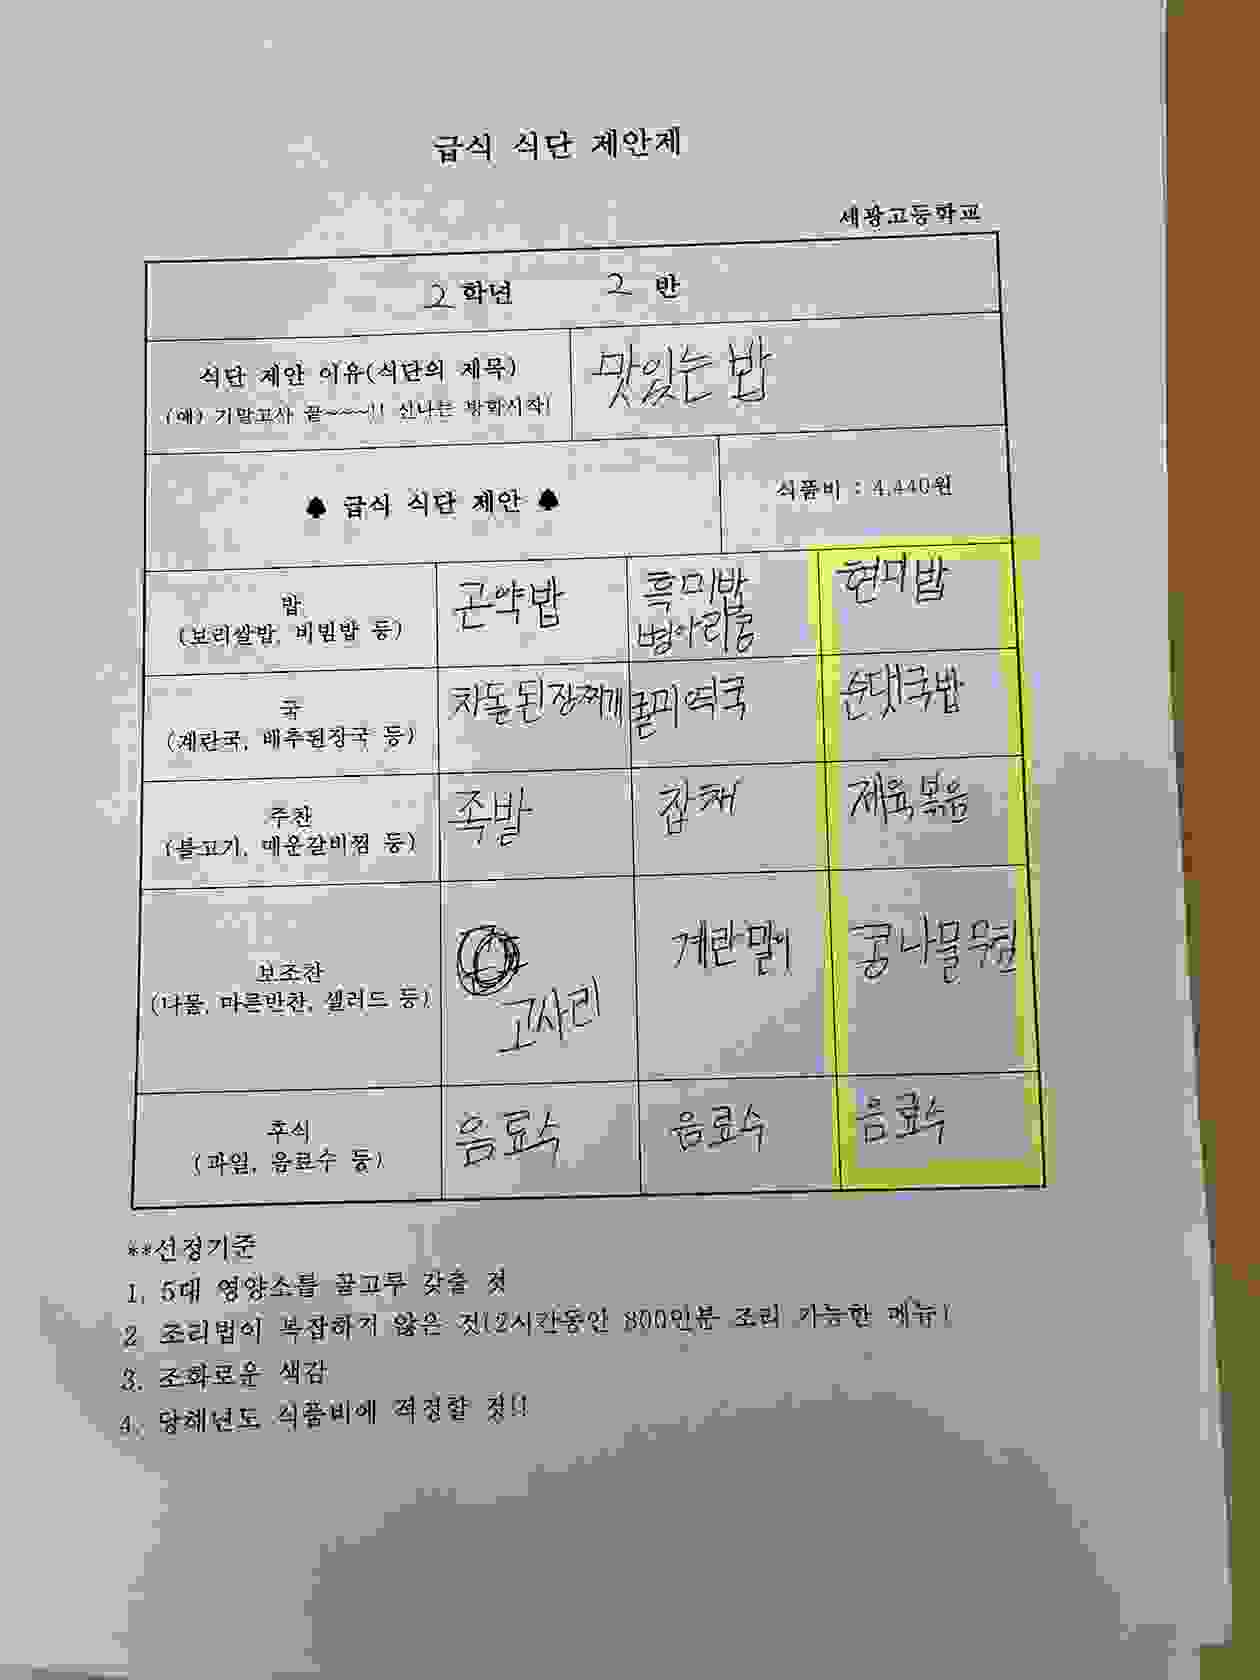 급식 식단 제안제
세광고등학교
2 학년 2 반
식단 제안 이유(식단의 제목)
(예) 기말고사 끝~~~!! 신나는 방학시작!
맛있는 밥
♠ 급식 식단 제안 ♠
식품비 : 4,440원
밥
(보리쌀밥, 비빔밥 등)
곤약밥
흑미밥
병아리콩
현미밥
국
(계란국, 배추된장국 등)
차돌된장찌개
굴미역국
순댓국밥
주찬
(불고기, 매운갈비찜 등)
족발
잡채
제육볶음
보조찬
(나물, 마른반찬, 샐러드 등)
고사리
계란말이
콩나물무침
후식
(과일, 음료수 등)
음료수
음료수
음료수
**선정기준
1. 5대 영양소를 골고루 갖출 것
2. 조리법이 복잡하지 않은 것(2시간동안 800인분 조리 가능한 메뉴)
3. 조화로운 색감
4. 당해년도 식품비에 적정할 것!!